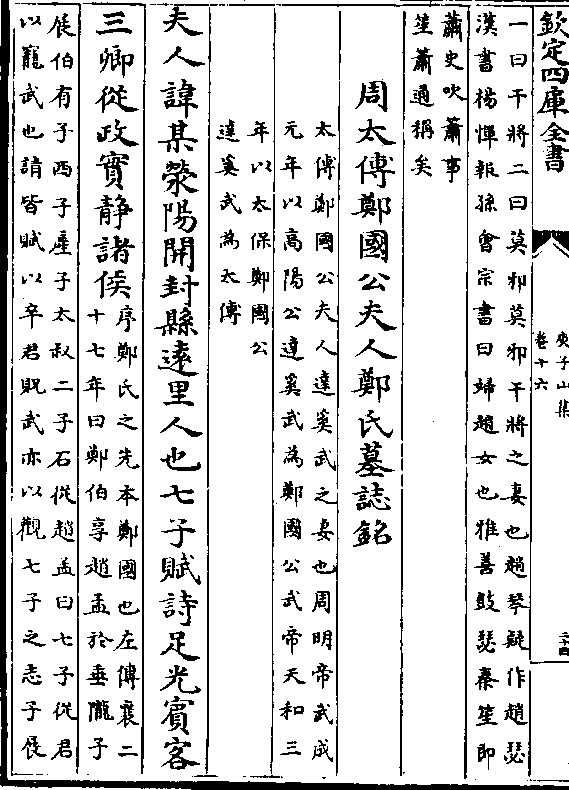 欽定四庫全書
庾子山集
卷十六
二十四
一曰干將二曰莫邪莫邪干將之妻也趙琴疑作趙瑟
漢書楊惲報孫會宗書曰婦趙女也雅善鼓瑟秦笙即
蕭史吹蕭事
笙蕭通稱矣
周太傅鄭國公夫人鄭氏墓誌銘
太傅鄭國公夫人達奚武之妻也周明帝武成
元年以高陽公達奚武為鄭國公武帝天和三
年以太保鄭國公
達奚武為太傅
夫人諱某滎陽開封縣逺里人也七子賦詩足光賓客
三卿從政實静諸侯
序鄭氏之先本鄭國也左傳襄二
十七年曰鄭伯享趙孟於垂隴子
展伯有子西子產子太叔二子石從趙孟曰七子從君
以寵武也請皆賦以卒君貺武亦以觀七子之志子展